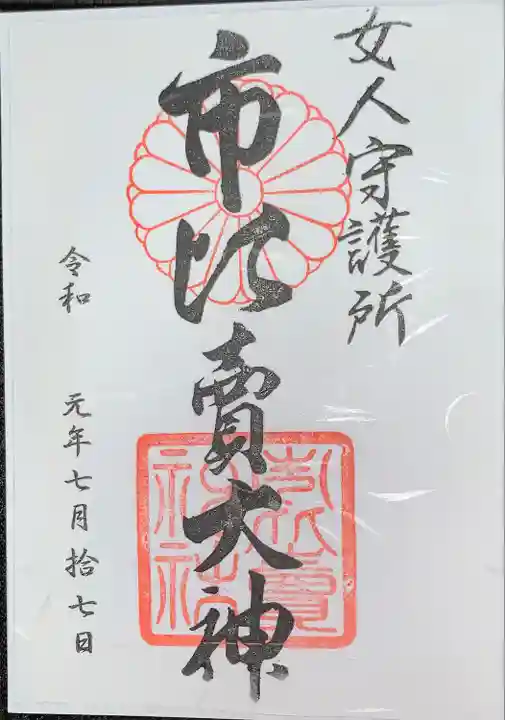 女人守護所
市比賣大神
令和 元年七月拾七日